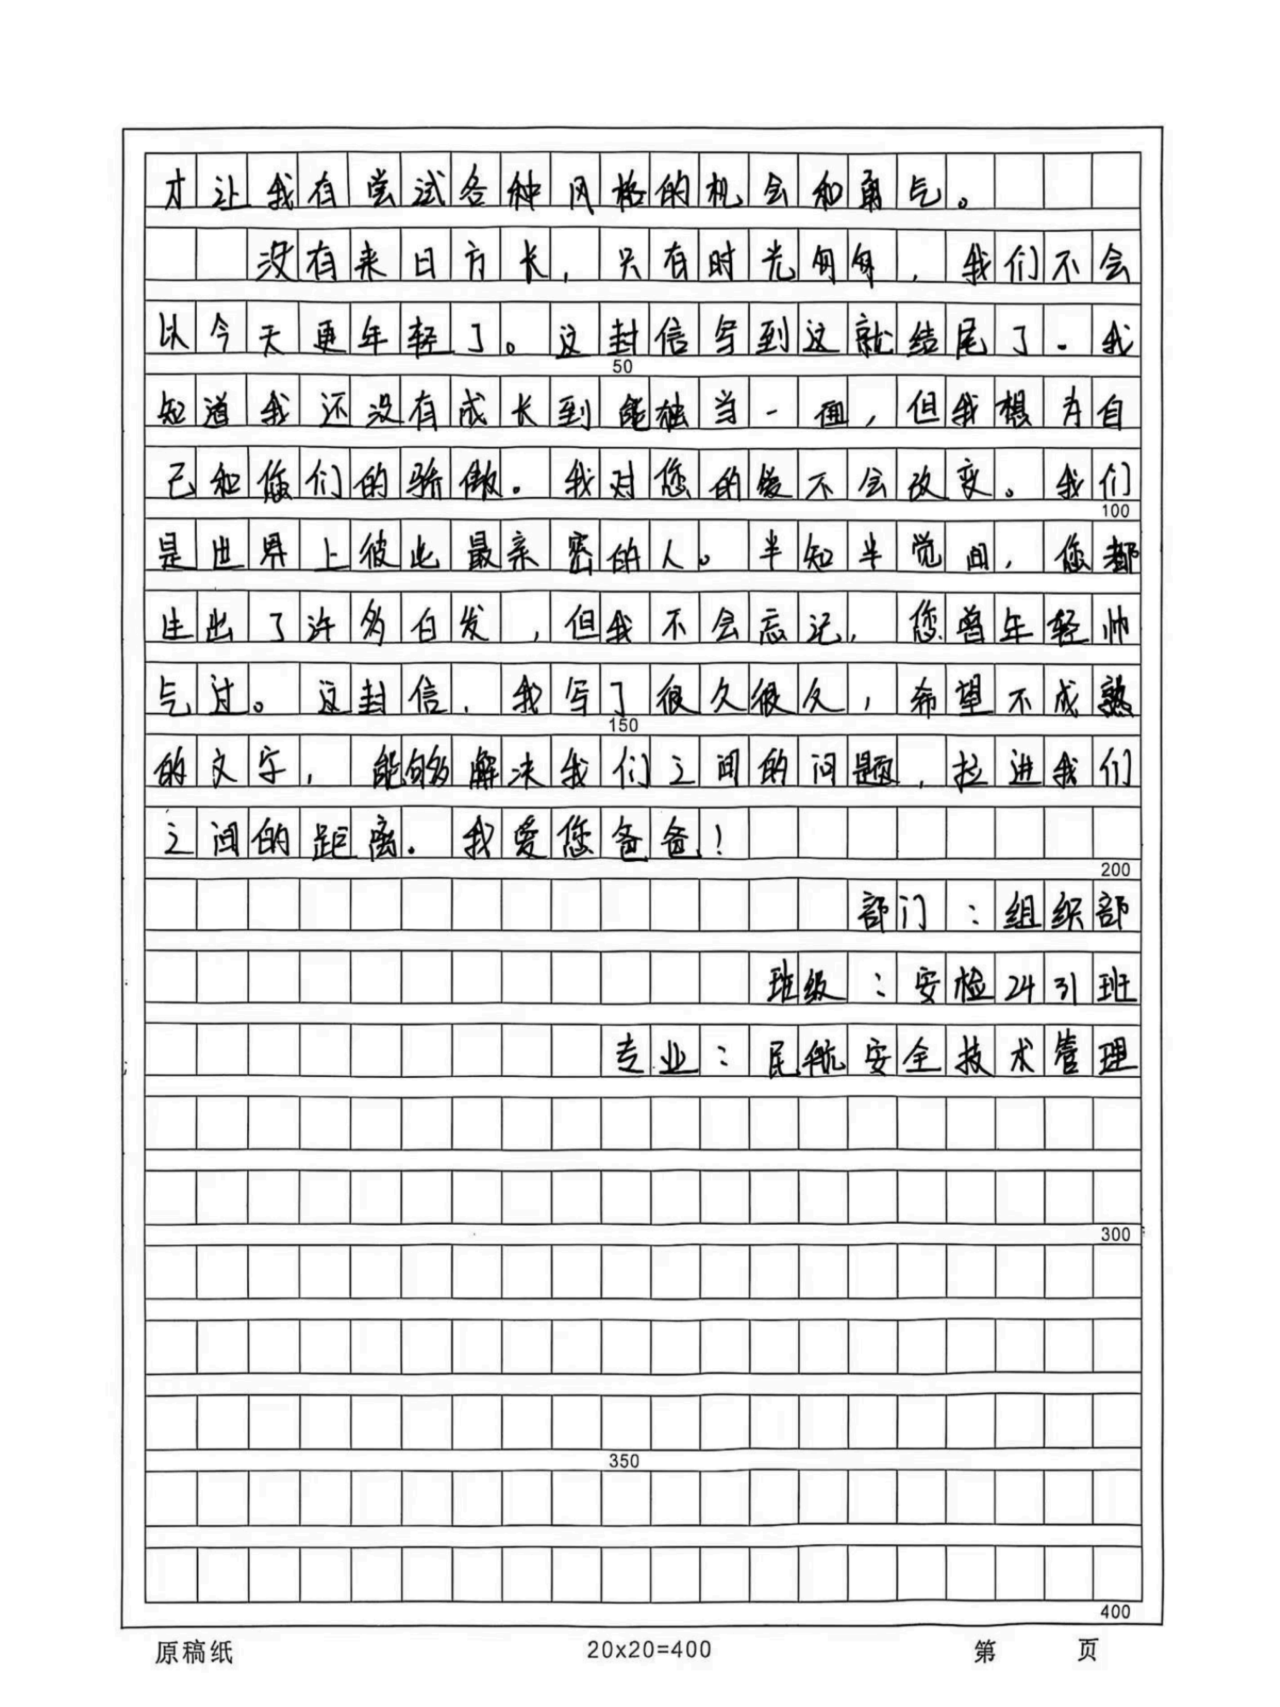 才让我有尝试各种风格的机会和勇气。
没有来日方长，只有时光匆匆，我们不会
以今天更年轻了。这封信写到这就结尾了。我
50
知道我还没有成长到能独当一面，但我想为自
己和您们的骄傲。我对您的爱不会改变。我们
100
是世界上彼此最亲密的人。半知半觉间，您都
生出了许多白发，但我不会忘记，您曾年轻帅
气过。这封信，我写了很久很久，希望不成熟
150
的文字，能够解决我们之间的问题，拉进我们
之间的距离。我爱您爸爸！
200
部门：组织部
班级：安检2431班
专业：民航安全技术管理
300
350
400
原稿纸 20x20=400 第 页